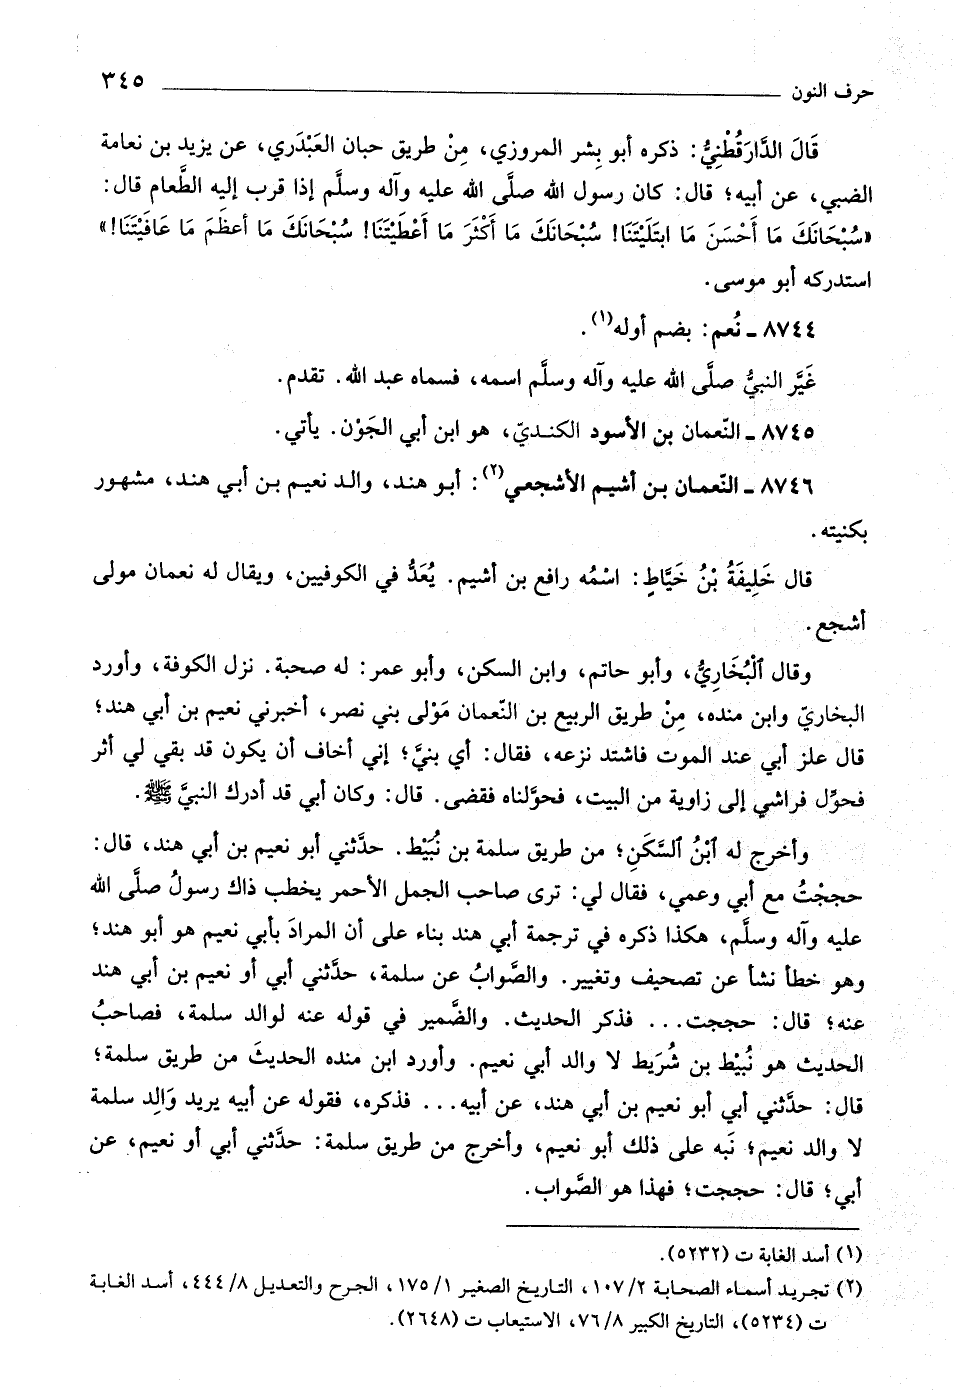 حرف النون ٣٤٥
قَالَ الدَّارَقُطْنِيُّ: ذكره أبو بِشر المروزي، مِنْ طريق حبان العَبْدَري، عن يزيد بن نعامة
الضبي، عن أبيه؛ قال: كان رسول الله صلَّى الله عليه وآله وسلَّم إذا قرب إليه الطَّعام قال:
«سُبْحَانَكَ مَا أَحْسَنَ مَا ابتَلَيْتَنَا! سُبْحَانَكَ مَا أَكْثَرَ مَا أَعْطَيْتَنَا! سُبْحَانَكَ مَا أعظَمَ مَا عَافَيْتَنَا!»
استدركه أبو موسى.
٨٧٤٤ ـ نُعم: بضم أوله(١).
غَيَّر النبيُّ صلَّى الله عليه وآله وسلَّم اسمه، فسماه عبد الله. تقدم.
٨٧٤٥ ـ النّعمان بن الأسود الكنديّ، هو ابن أبي الجَوْن. يأتي.
٨٧٤٦ ـ النّعمان بن أشيم الأشجعي(٢): أبو هند، والد نعيم بن أبي هند، مشهور
بكنيته.
قال خَلِيفَةُ بْنُ خَيَّاطٍ: اسْمُه رافع بن أشيم. يُعَدُّ في الكوفيين، ويقال له نعمان مولى
أشجع.
وقال ٱلْبُخَارِيُّ، وأبو حاتم، وابن السكن، وأبو عمر: له صحبة. نزل الكوفة، وأورد
البخاريّ وابن منده، مِنْ طريق الربيع بن النّعمان مَوْلى بني نصر، أخبرني نعيم بن أبي هند؛
قال علز أبي عند الموت فاشتد نزعه، فقال: أي بنيَّ؛ إني أخاف أن يكون قد بقي لي أثر
فحوِّل فراشي إلى زاوية من البيت، فحوَّلناه فقضى. قال: وكان أبي قد أدرك النبيَّ ﷺ.
وأخرج له ٱبْنُ ٱلسَّكَنِ؛ من طريق سلمة بن نُبَيْط. حدَّثني أبو نعيم بن أبي هند، قال:
حججْتُ مع أبي وعمي، فقال لي: ترى صاحب الجمل الأحمر يخطب ذاك رسولُ صلَّى الله
عليه وآله وسلَّم، هكذا ذكره في ترجمة أبي هند بناء على أن المرادَ بأبي نعيم هو أبو هند؛
وهو خطأ نشأ عن تصحيف وتغيير. والصَّوابُ عن سلمة، حدَّثني أبي أو نعيم بن أبي هند
عنه؛ قال: حججت... فذكر الحديث. والضَّمير في قوله عنه لوالد سلمة، فصاحبُ
الحديث هو نُبيْط بن شُرَيط لا والد أبي نعيم. وأورد ابن منده الحديثَ من طريق سلمة؛
قال: حدَّثني أبي أبو نعيم بن أبي هند، عن أبيه... فذكره، فقوله عن أبيه يريد وَالِد سلمة
لا والد نعيم؛ نَبه على ذلك أبو نعيم، وأخرج من طريق سلمة: حدَّثني أبي أو نعيم، عن
أبي؛ قال: حججت؛ فهذا هو الصَّواب.
(١) أسد الغابة ت (٥٢٣٢).
(٢) تجريد أسماء الصحابة ١٠٧/٢، التاريخ الصغير ١٧٥/١، الجرح والتعديل ٤٤٤/٨، أسد الغابة
ت (٥٢٣٤)، التاريخ الكبير ٧٦/٨، الاستيعاب ت (٢٦٤٨).